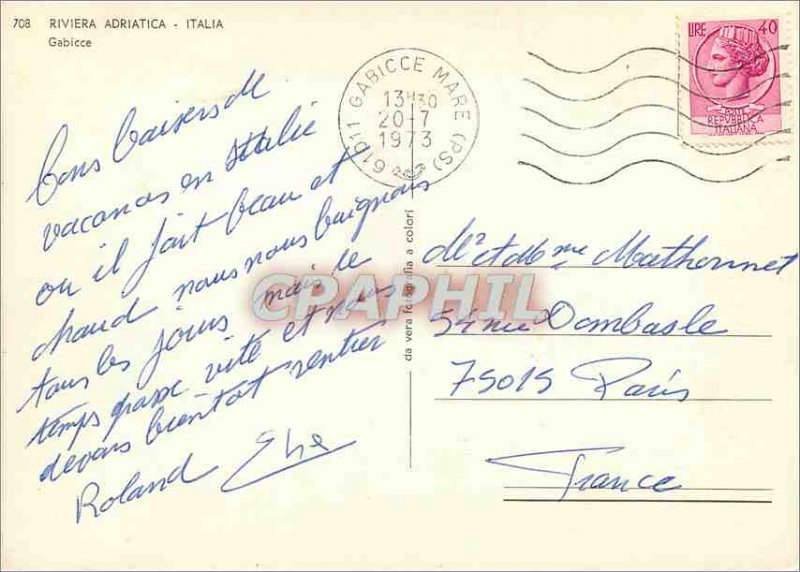 708 RIVIERA ADRIATICA - ITALIA
Gabicce
Bons baisers de
vacances en Italie
ou il fait beau et
chaud nous nous baignons
tous les jours mais le
temps passe vite et nous
devons bientot rentrer
Roland
61011 GABICCE MARE (PS)
13H30
20-7
1973
LIRE 40
POSTE
REPVBBLICA
ITALIANA
da vera fotografia a colori
Mr et Mme Mathonnet
54 rue Dombasle
75015 Paris
France
CPAPHIL